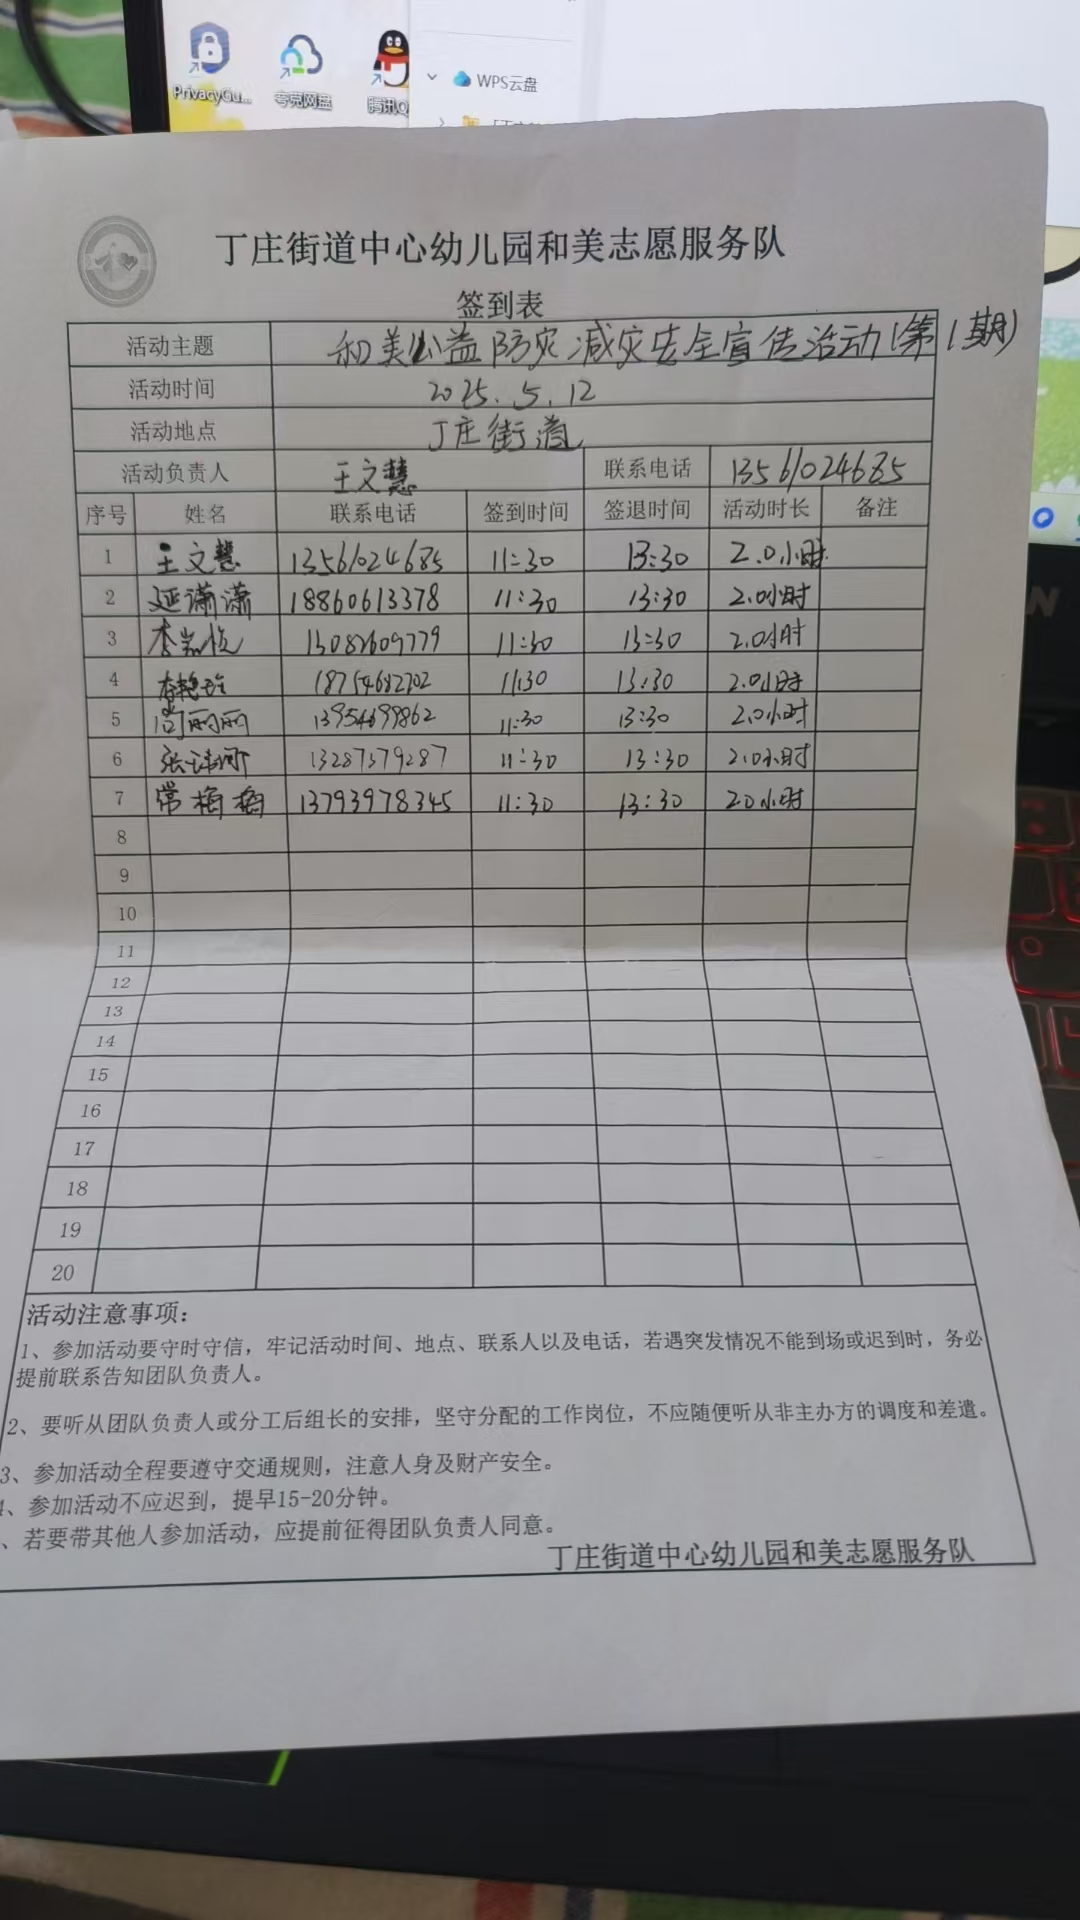 PrivacyGu...
夸克网盘
腾讯Q
WPS云盘
丁庄街道中心幼儿园和美志愿服务队
签到表
活动主题 和美公益防灾减灾安全宣传活动(第1期)
活动时间 2025.5.12
活动地点 丁庄街道
活动负责人 王文慧 联系电话 13561024685
序号 姓名 联系电话 签到时间 签退时间 活动时长 备注
1 王文慧 13561024685 11:30 13:30 2.0小时
2 延潇潇 18860613378 11:30 13:30 2.0小时
3 13082609779 11:30 13:30 2.0小时
4 18754682702 11:30 13:30 2.0小时
5 尚丽丽 13954699862 11:30 13:30 2.0小时
6 13287379287 11:30 13:30 2.0小时
7 常梅梅 13793978345 11:30 13:30 2.0小时
8
9
10
11
12
13
14
15
16
17
18
19
20
活动注意事项：
1、参加活动要守时守信，牢记活动时间、地点、联系人以及电话，若遇突发情况不能到场或迟到时，务必
提前联系告知团队负责人。
2、要听从团队负责人或分工后组长的安排，坚守分配的工作岗位，不应随便听从非主办方的调度和差遣。
3、参加活动全程要遵守交通规则，注意人身及财产安全。
4、参加活动不应迟到，提早15-20分钟。
、若要带其他人参加活动，应提前征得团队负责人同意。
丁庄街道中心幼儿园和美志愿服务队